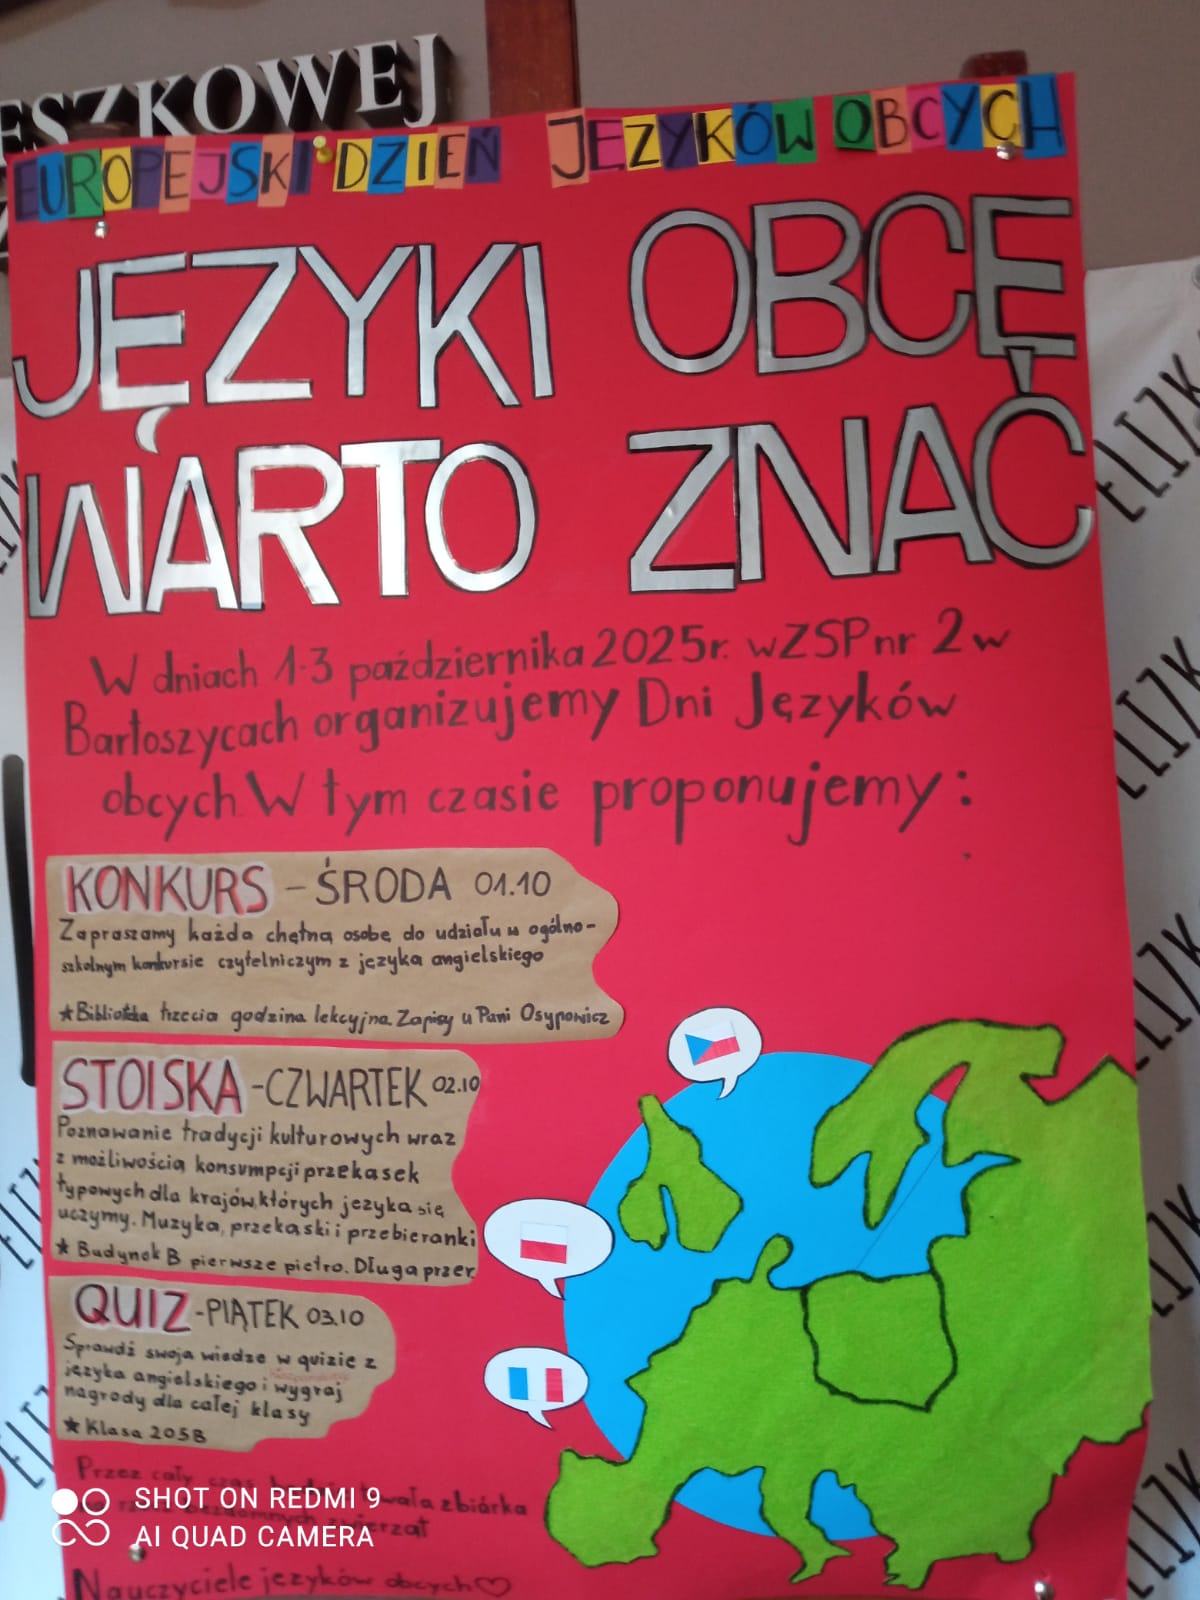 ESZKOWEJ
EUROPEJSKI DZIEŃ JĘZYKÓW OBCYCH
JĘZYKI OBCE
WARTO ZNAĆ
W dniach 1-3 października 2025r. w ZSP nr 2 w
Bartoszycach organizujemy Dni Języków
obcych. W tym czasie proponujemy:
KONKURS - ŚRODA 01.10
Zapraszamy każdą chętną osobę do udziału w ogólno-
szkolnym konkursie czytelniczym z języka angielskiego
★Biblioteka trzecia godzina lekcyjna. Zapisy u Pani Osypowicz
STOISKA - CZWARTEK 02.10
Poznawanie tradycji kulturowych wraz
z możliwością konsumpcji przekąsek
typowych dla krajów, których języka się
uczymy. Muzyka, przekąski i przebieranki
★ Budynek B pierwsze piętro. Długa przer.
QUIZ - PIĄTEK 03.10
Sprawdź swoją wiedzę w quizie z
języka angielskiego i wygraj
nagrody dla całej klasy
★ Klasa 205B
Przez cały czas będzie trwała zbiórka
bezdomnych zwierząt
Nauczyciele języków obcych♡
ELIZK
ELIZK
ELIZK
ELIZK
SHOT ON REDMI 9
AI QUAD CAMERA